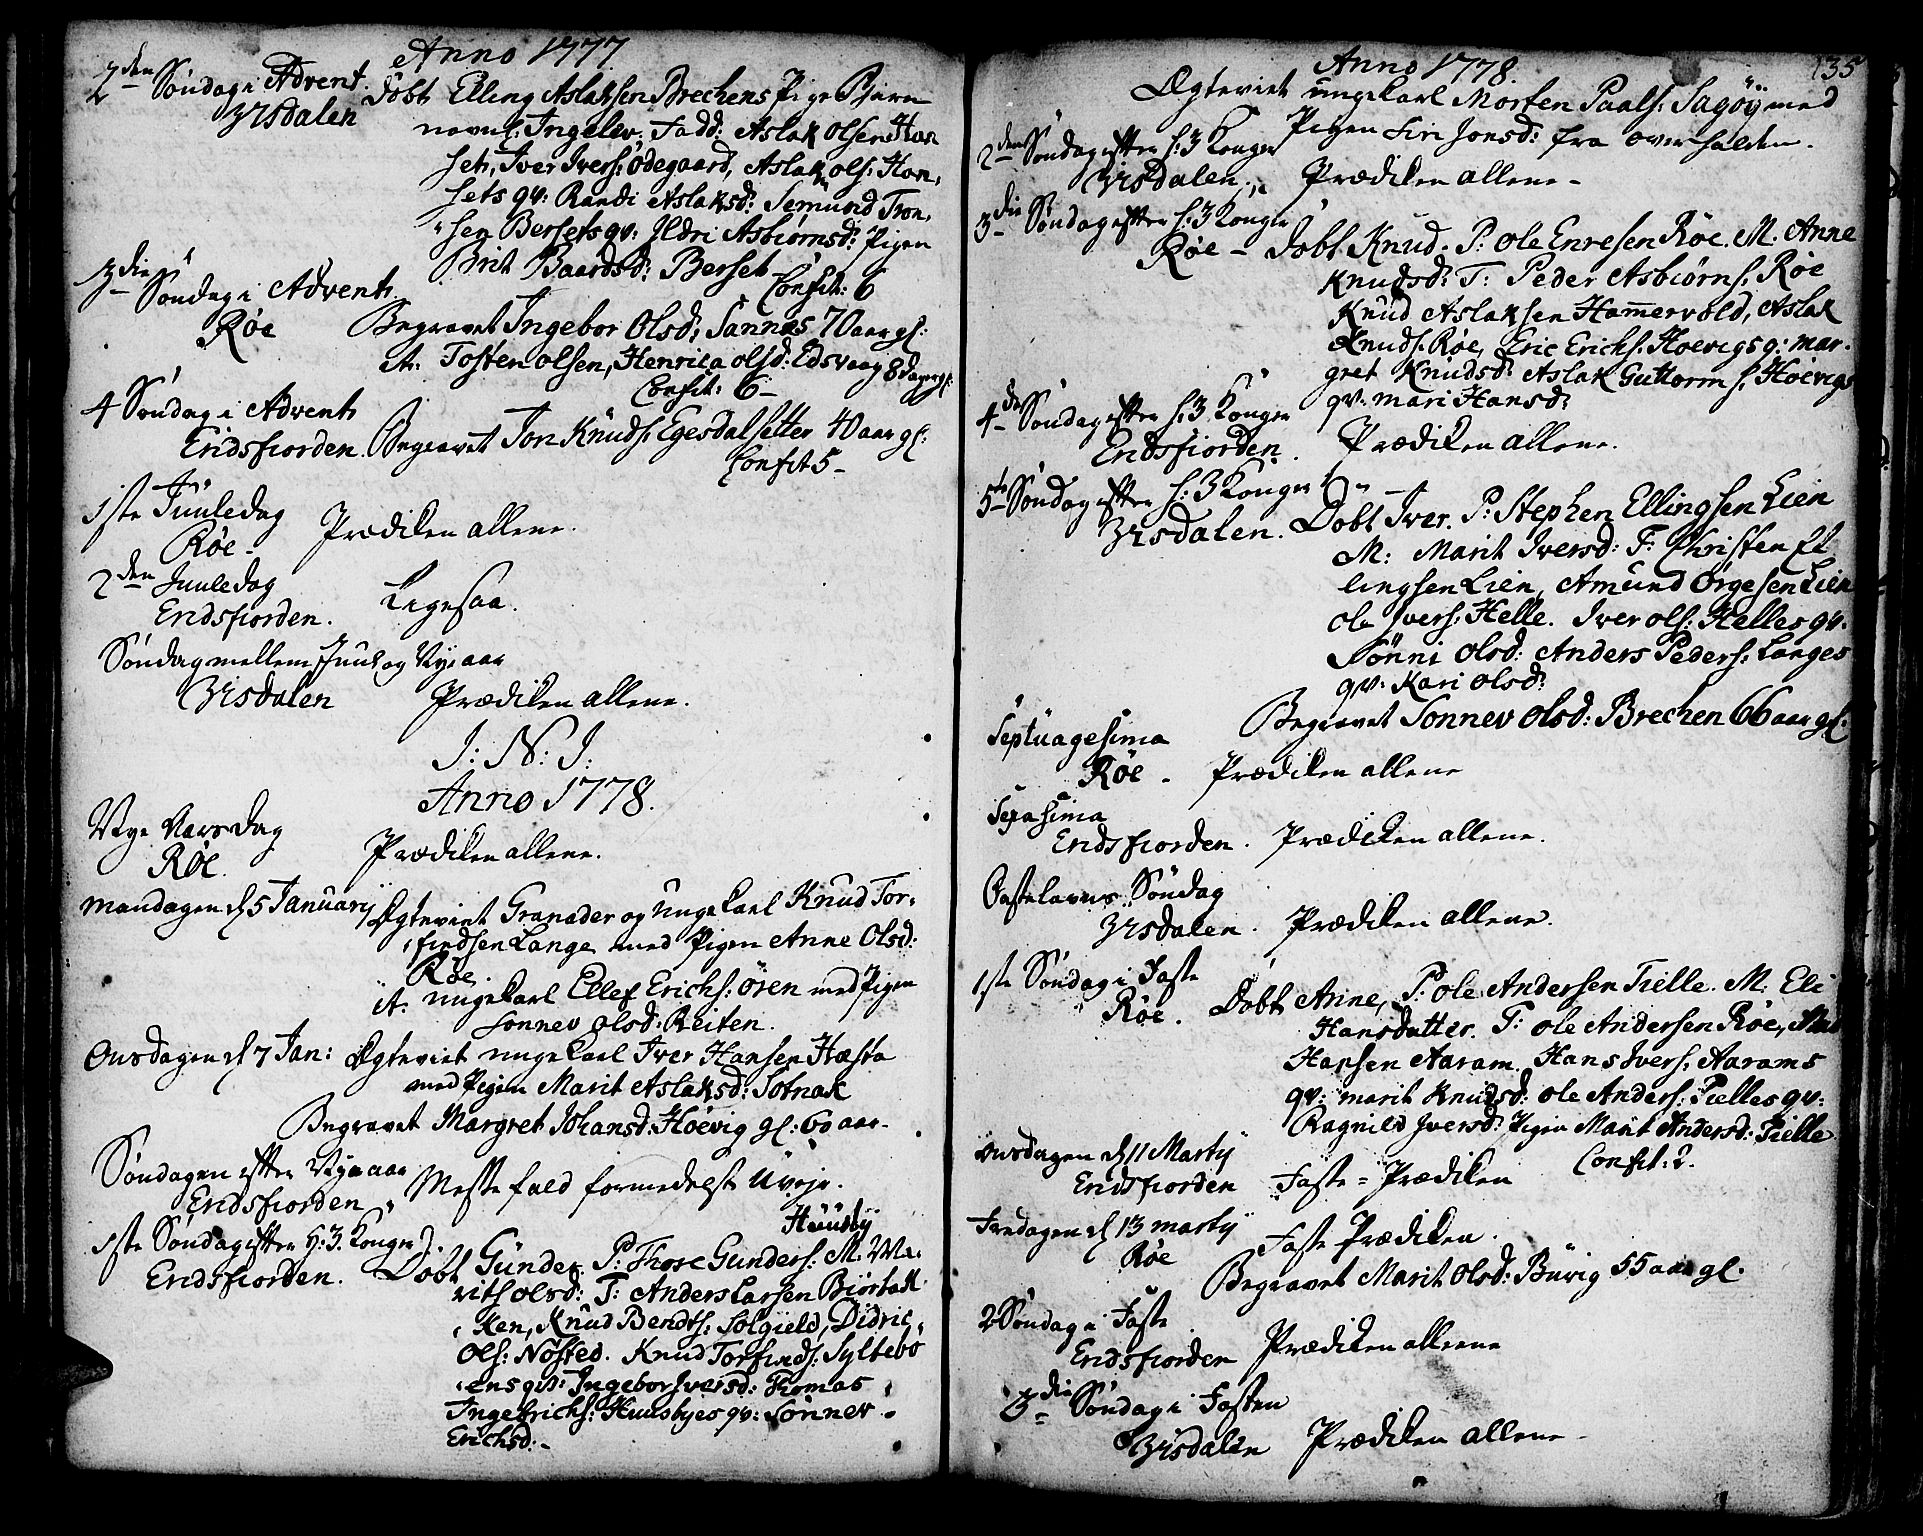 Anno 1777
2den Søndag i Advent. Døbt Elling Aslaksen Brechens Pige Barn
Visdalen
nevnt: Ingelev. Fadd: Aslak Olsen Hon
set, Iver Ivers: Ødegaard, Aslak ols: Hon,
sets qv: Randi Aslaksd: Semund Tron,
sen Bersets qv: Ildri Asbiørnsd: Pigen
Brit Baardsd: Berset
Confit: 6
3die Søndag i Advent,
Røe
Begravet Ingebor Olsd: Sannæs 70 aar gl:
it: Tosten olsen, Henrica olsd: Edsvaag 8 dage gl:
Confit: 6
4 Søndag i Advent,
Eridsfiorden. Begravet Jon Knuds: Egesdalsetter 40 aar gl:
Confit 5
1ste Juuledag
Røe
Prædiken allene.
2den Juuledag
Eridsfiorden.
Ligesaa.
Søndag mellem Juul og Nyeaar
Visdalen
Prædiken allene.
J: N: J:
Anno 1778.
Nye Aarsdag
Røe.
Prædiken allene.
Mandagen d 5 Januarij Ægteviet Granader og Ungekarl Knud Tor,
findsen Lange med Pigen Anne Olsd:
Røe.
it: ungekarl Ellef Erichs: Ören med Pigen
Sonnev Olsd: Reiten.
Onsdagen d 7 Jan: Ægteviet ungekarl Iver Hansen Hæsta
med Pigen Marit Aslaksd: Sotnak
Begravet Margret Johansd: Høevig gl: 60 aar.
Søndagen efter Nyeaar
Eridsfiorden,
Messe fald formedelst Uveje.
1ste Søndag efter H: 3. Konger
Eridsfiorden.
Huusby
Døbt Gunder P: Thore Gunders: M: Ma,
rit olsd: T: Anders Larsen Biørbak
ken, Knud Bendts: Solgield, Didric
Ols: Nøsted. Knud Torfinds: Syltebö
ens qv: Ingebor Iversd: Thomas
Ingebrichs: Huusbyes qv: Sønnev
Erichsd:
Anno 1778.
135
Ægteviet ungekarl Morten Paals: Sagöÿ med
Pigen Siri Jonsd: fra Overhalden.
2den Søndag efter h: 3 Konger
Visdalen.
Prædiken allene
3die Søndag efter h: 3 Konger
Røe - Døbt Knud. P: Ole Enresen Røe. M: Anne
Knudsd: T: Peder Asbiørns: Røe
Knud Aslaksen Hammervold, Aslak
Knuds: Røe, Eric Erichs: Hoevigs q: mar,
gret Knudsd: Aslak Guttorm s: Hoevigs
qv: Mari Hansd:
4de Søndag efter h: 3 Konger
Eridsfiorden.
Prædiken allene.
5te Søndag efter h: 3 Konger
Visdalen. Døbt Iver. P: Stephen Ellingsen Lien
M: Marit Iversd: T: Christen El
lingsen Lien, Amund Ørgesen Lien
Ole Ivers: Helle. Iver ols: Helles qv.
Sönni Olsd: Anders Peders: Langes
qv: Kari olsd:
Begravet Sonnev Olsd: Brechen 66 aar gl:
Septuagesima
Røe - Prædiken allene
Sexasima
Eridsfiorden. Prædiken allene.
Fastelavns Søndag
Visdalen. Prædiken allene.
1ste Søndag i Faste
Røe. Døbt Anne, P: Ole Andersen Tielle. M: Eli
Hansdatter. T: Ole Andersen Røe,
Hansen Aaram, Hans Ivers: Aarams
qv: marit Knudsd: Ole Anders: Tielles qv:
Ragnild Iversd: Pigen Marit Andersd: Tielle
Confit: 2.
Onsdagen d 11 Martij
Eridsfiorden
Faste = Prædiken
Fredagen d 13 martij
Røe
Faste Prædiken.
Begravet Marit Olsd: Buvig 55 aar gl.
2 Søndag i Faste
Eridsfiorden
Prædiken allene
3die Søndag i Fasten
Visdalen Prædiken allene